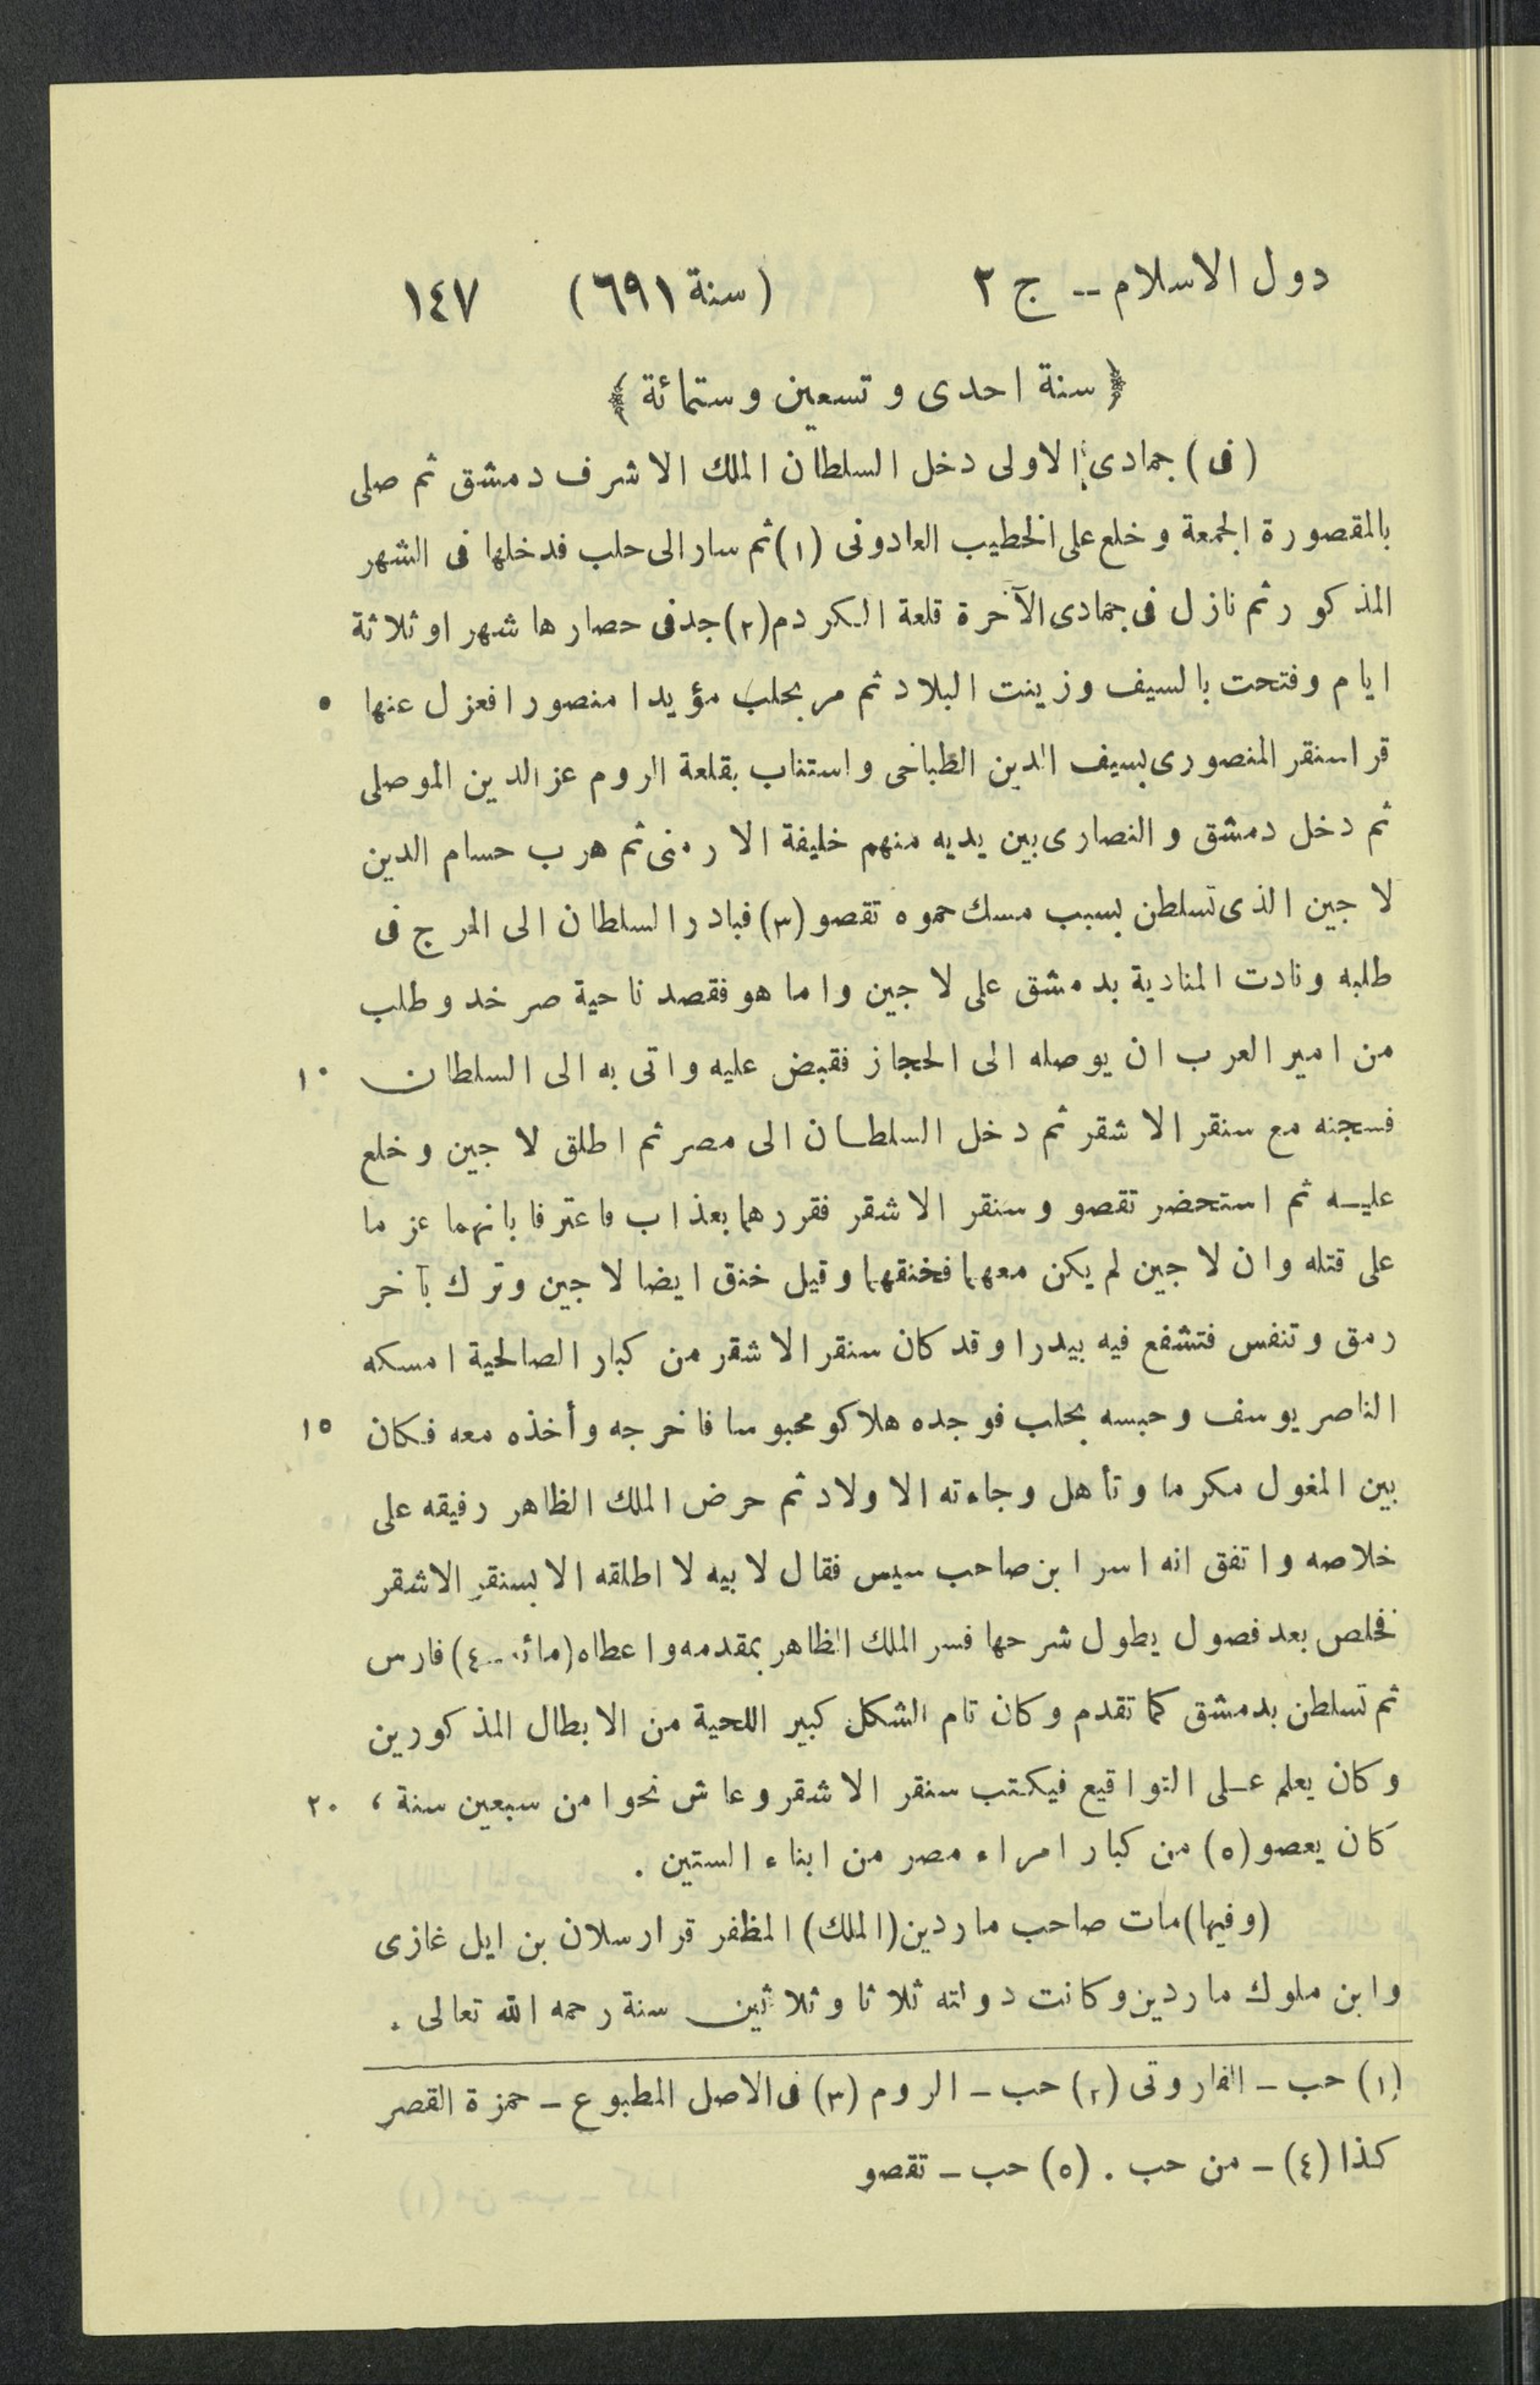 دول الاسلام -- ج ٢ (سنة ٦٩١) ١٤٧
﴿ سنة احدى وتسعين وستمائة ﴾
(فى) جمادى الاولى دخل السلطان الملك الاشرف دمشق ثم صلى
بالمقصورة الجمعة وخلع على الخطيب العادونى (١) ثم سار الى حلب فدخلها فى الشهر
المذكور ثم نازل فى جمادى الآخرة قلعة الكردم (٢) جد فى حصارها شهر او ثلاثة
ايام وفتحت بالسيف وزينت البلاد ثم مر بحلب مؤيدا منصورا فعزل عنها ٥
قراسنقر المنصورى بسيف الدين الطباخى واستناب بقلعة الروم عز الدين الموصلى
ثم دخل دمشق والنصارى بين يديه منهم خليفة الارمنى ثم هرب حسام الدين
لاجين الذى تسلطن بسبب مسك حموه تقصو (٣) فبادر السلطان الى المرج فى
طلبه ونادت المنادية بدمشق على لاجين واما هو فقصد ناحية صرخد وطلب
من امير العرب ان يوصله الى الحجاز فقبض عليه واتى به الى السلطان ١٠
فسجنه مع سنقر الاشقر ثم دخل السلطان الى مصر ثم اطلق لاجين وخلع
عليه ثم استحضر تقصو وسنقر الاشقر فقررهما بعذاب فاعترفا بانهما عزما
على قتله وان لاجين لم يكن معهما فخنقهما وقيل خنق ايضا لاجين وترك بآخر
رمق وتنفس فتشفع فيه بيدرا وقد كان سنقر الاشقر من كبار الصالحية امسكه
الناصر يوسف وحبسه بحلب فوجده هلاكو محبوسا فاخرجه وأخذه معه فكان ١٥
بين المغول مكرما وتأهل وجاءته الاولاد ثم حرض الملك الظاهر رفيقه على
خلاصه واتفق انه اسر ابن صاحب سيس فقال لابيه لا اطلقه الا بسنقر الاشقر
فخلص بعد فصول يطول شرحها فسر الملك الظاهر بمقدمه واعطاه (مائة -- ٤) فارس
ثم تسلطن بدمشق كما تقدم وكان تام الشكل كبير اللحية من الابطال المذكورين
وكان يعلم على التواقيع فيكتب سنقر الاشقر وعاش نحوا من سبعين سنة ، ٢٠
كان يعصو (٥) من كبار امراء مصر من ابناء الستين .
(وفيها) مات صاحب ماردين (الملك) المظفر قرارسلان بن ايل غازى
وابن ملوك ماردين وكانت دولته ثلاثا وثلاثين سنة رحمه الله تعالى .
(١) حب - الفاروثى (٢) حب - الروم (٣) فى الاصل المطبوع - حمزة القصر
كذا (٤) - من حب . (٥) حب - تقصو